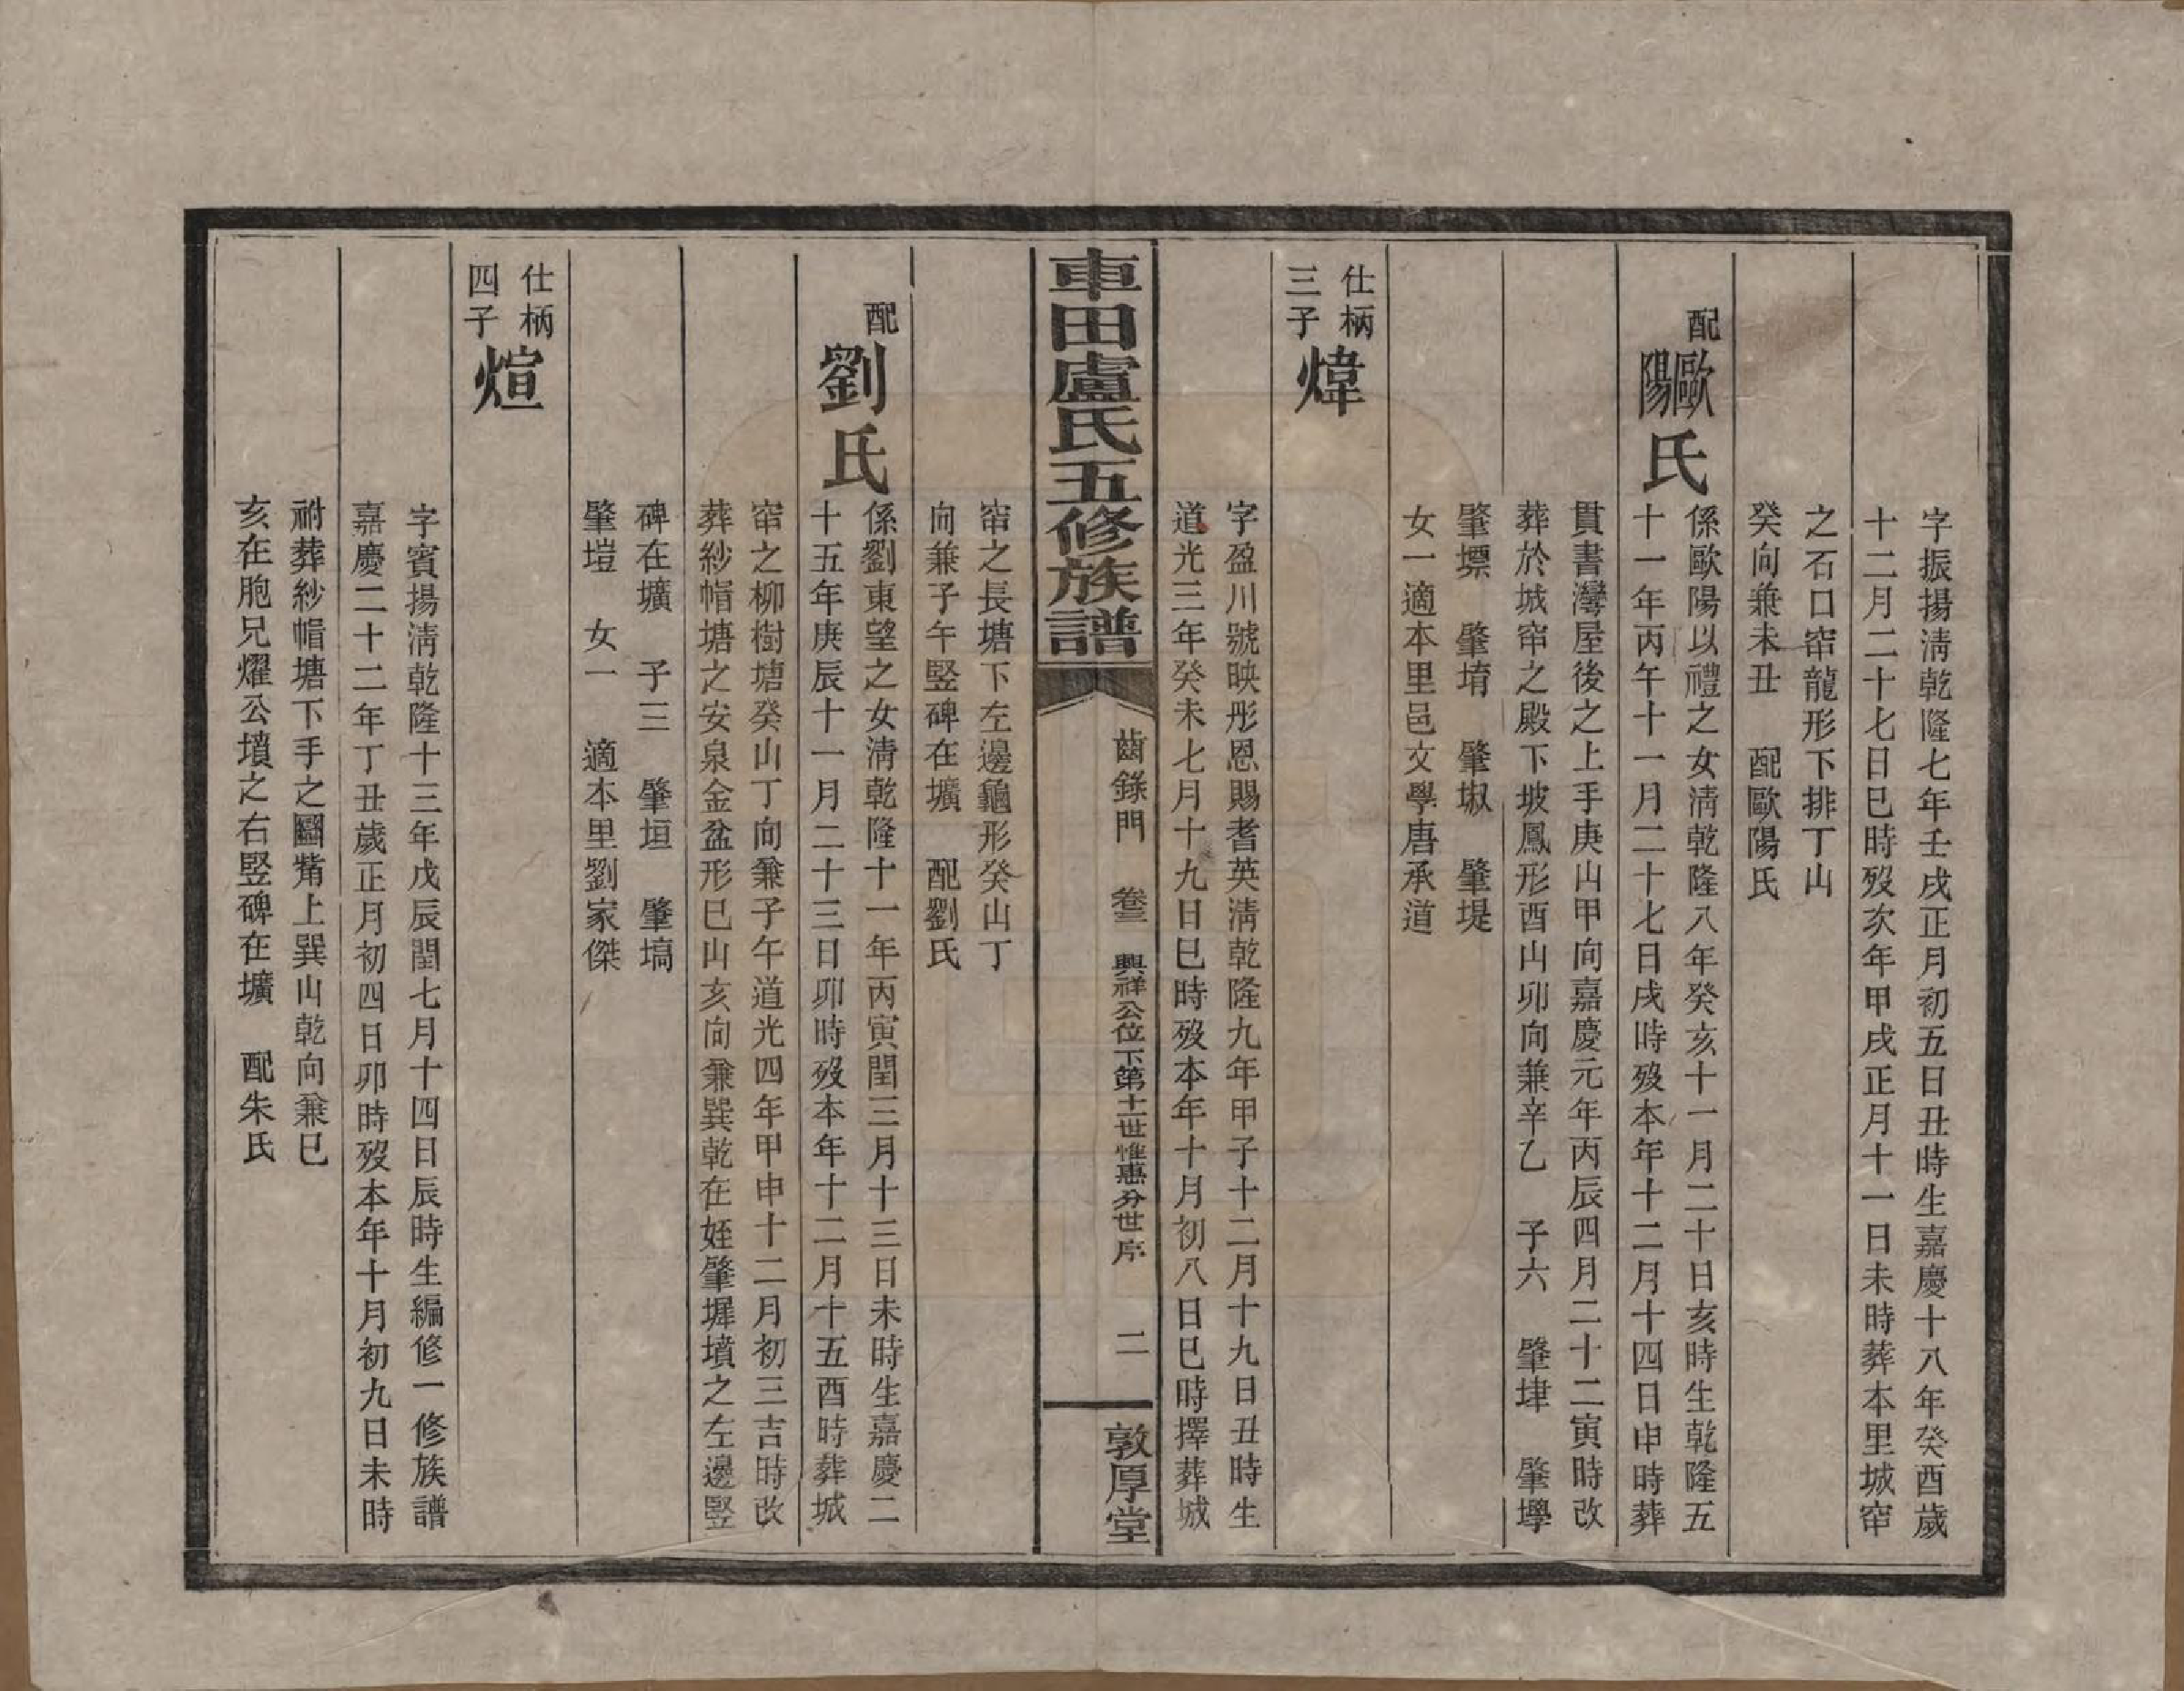 字振揚淸乾隆七年壬戌正月初五日丑時生嘉慶十八年癸酉歲
十二月二十七日巳時歿次年甲戌正月十一日未時葬本里城窂
之石口窂龍形下排丁山
癸向兼未丑　配歐陽氏
配歐陽氏
係歐陽以禮之女淸乾隆八年癸亥十一月二十日亥時生乾隆五
十一年丙午十一月二十七日戌時歿本年十二月十四日申時葬
貫書灣屋後之上手庚山甲向嘉慶元年丙辰四月二十二寅時改
葬於城窂之殿下坡鳳形酉山卯向兼辛乙　子六　肇垏　肇壆
肇㙩　肇堉　肇埱　肇堤
女一適本里邑文學唐承道
仕柄三子煒
字盈川號映彤恩賜耆英淸乾隆九年甲子十二月十九日丑時生
道光三年癸未七月十九日巳時歿本年十月初八日巳時擇葬城
車田盧氏五修族譜
齒錄門　卷三　興祥公位下第十一世惟惠分世序　二
敦厚堂
窂之長塘下左邊龜形癸山丁
向兼子午竪碑在壙　配劉氏
配劉氏
係劉東望之女淸乾隆十一年丙寅閏三月十三日未時生嘉慶二
十五年庚辰十一月二十三日卯時歿本年十二月十五酉時葬城
窂之柳樹塘癸山丁向兼子午道光四年甲申十二月初三吉時改
葬紗帽塘之安泉金盆形巳山亥向兼巽乾在姪肇墀墳之左邊竪
碑在壙　子三　肇垣　肇塙
肇塏　女一　適本里劉家傑
仕柄四子煊
字賓揚淸乾隆十三年戊辰閏七月十四日辰時生編修一修族譜
嘉慶二十二年丁丑歲正月初四日卯時歿本年十月初九日未時
祔葬紗帽塘下手之圝觜上巽山乾向兼巳
亥在胞兄燿公墳之右竪碑在壙　配朱氏